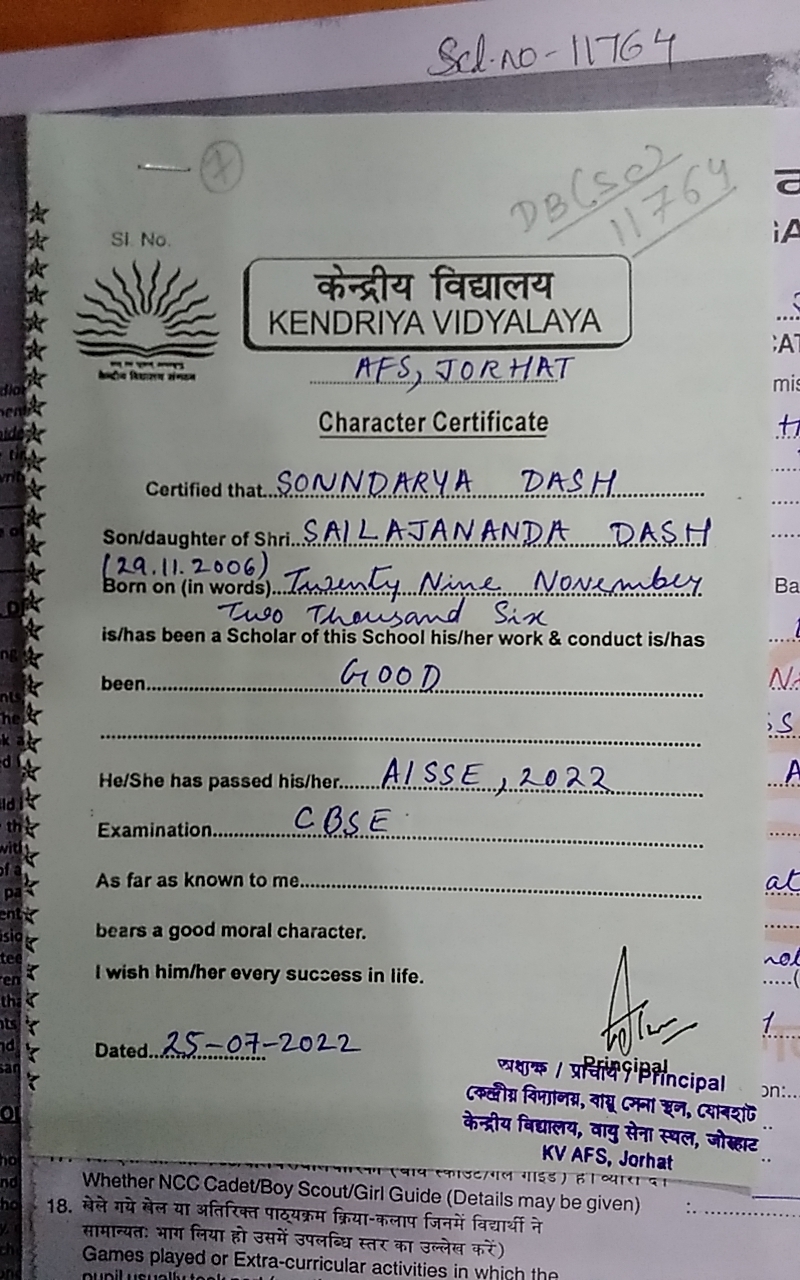 Scl.no-11764
DB(SC)
11764
Sl. No.
केन्द्रीय विद्यालय
KENDRIYA VIDYALAYA
केन्द्रीय विद्यालय संगठन
AFS, JORHAT
Character Certificate
Certified that...SONNDARYA DASH
Son/daughter of Shri...SAILAJANANDA DASH
(29.11.2006)
Born on (in words)...Twenty Nine November
Two Thousand Six
is/has been a Scholar of this School his/her work & conduct is/has
been...GOOD
He/She has passed his/her...AISSE, 2022
Examination...CBSE
As far as known to me...
bears a good moral character.
I wish him/her every success in life.
Dated...25-07-2022
Principal
অধ্যক্ষ / प्राचार्य / Principal
केन्द्रीय विद्यालय, वायु सेना स्थल, जोरहाट
KV AFS, Jorhat
Whether NCC Cadet/Boy Scout/Girl Guide (Details may be given)
18. खेले गये खेल या अतिरिक्त पाठ्यक्रम क्रिया-कलाप जिनमें विद्यार्थी ने
सामान्यतः भाग लिया हो उसमें उपलब्धि स्तर का उल्लेख करें)
Games played or Extra-curricular activities in which the